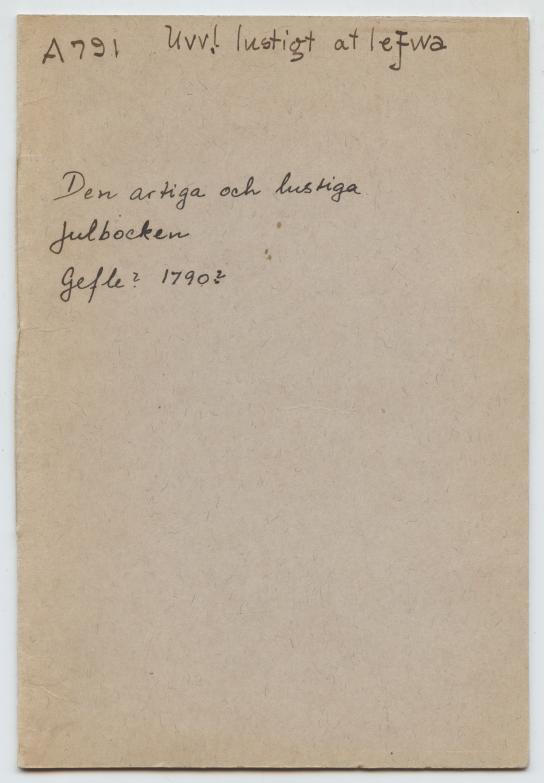 A791 Uvv! lustigt at lefwa
Den artiga och lustiga
Julbocken
Gefle? 1790?